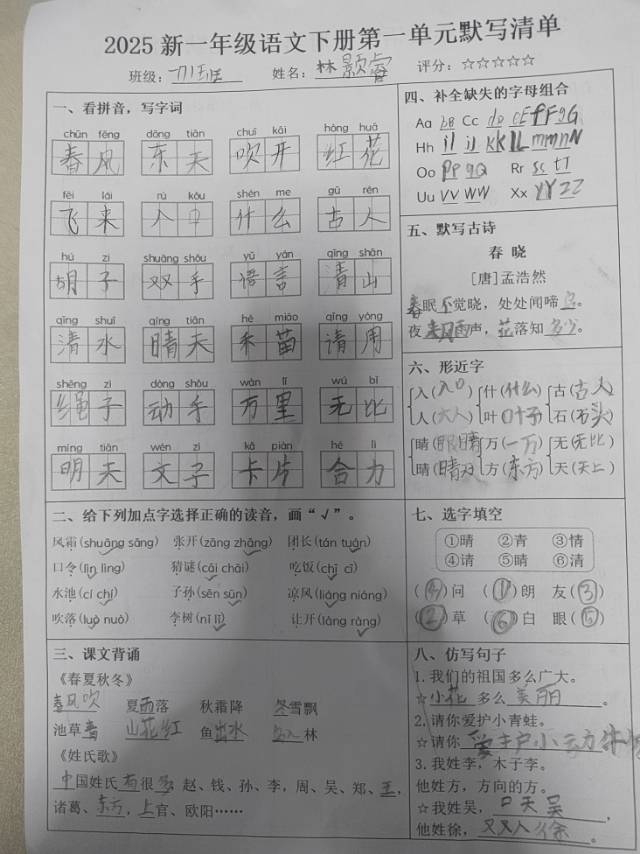 2025 新一年级语文下册第一单元默写清单
班级： 姓名：林颢睿 评分：☆☆☆☆☆
一、看拼音，写字词
chūn fēng dōng tiān chuī kāi hóng huā
春风 东天 吹开 红花
fēi lái rù kǒu shén me gǔ rén
飞来 入口 什么 古人
hú zi shuāng shǒu yǔ yán qīng shān
胡子 双手 语言 青山
qīng shuǐ qíng tiān hé miáo qǐng yòng
清水 晴天 禾苗 请用
shéng zi dòng shǒu wàn lǐ wú bǐ
绳子 动手 万里 无比
míng tiān wén zì kǎ piàn hé lì
明天 文子 卡片 合力
二、给下列加点字选择正确的读音，画“√”。
风霜(shuāng sāng) 张开(zāng zhāng) 团长(tán tuán)
口令(lìn lìng) 猜谜(cāi chāi) 吃饭(chī cī)
水池(cí chí) 子孙(sēn sūn) 凉风(liáng niáng)
吹落(luò nuò) 李树(nǐ lǐ) 让开(làng ràng)
三、课文背诵
《春夏秋冬》
春风吹 夏雨落 秋霜降 冬雪飘
池草青 山花红 鱼出水 鸟入林
《姓氏歌》
中国姓氏有很多，赵、钱、孙、李，周、吴、郑、王，
诸葛、东方，上官、欧阳……
四、补全缺失的字母组合
Aa Bb Cc Dd Ee Ff Gg
Hh Ii Jj Kk Ll Mm Nn
Oo Pp Qq Rr Ss Tt
Uu Vv Ww Xx Yy Zz
五、默写古诗
春 晓
[唐]孟浩然
春眠不觉晓，处处闻啼鸟。
夜来风雨声，花落知多少。
六、形近字
入(入口) 什(什么) 古(古人)
人(大人) 叶(叶子) 石(石头)
睛(眼睛) 万(一万) 无(无比)
晴(晴天) 方(东方) 天(天上)
七、选字填空
①晴 ②青 ③情
④请 ⑤睛 ⑥清
(④)问 (①)朗 友(③)
(②)草 (⑥)白 眼(⑤)
八、仿写句子
1. 我们的祖国多么广大。
☆小花多么美丽。
2. 请你爱护小青蛙。
☆请你爱护小动物
3. 我姓李，木子李。
他姓方，方向的方。
☆我姓吴，口天吴，
他姓徐，双人徐。